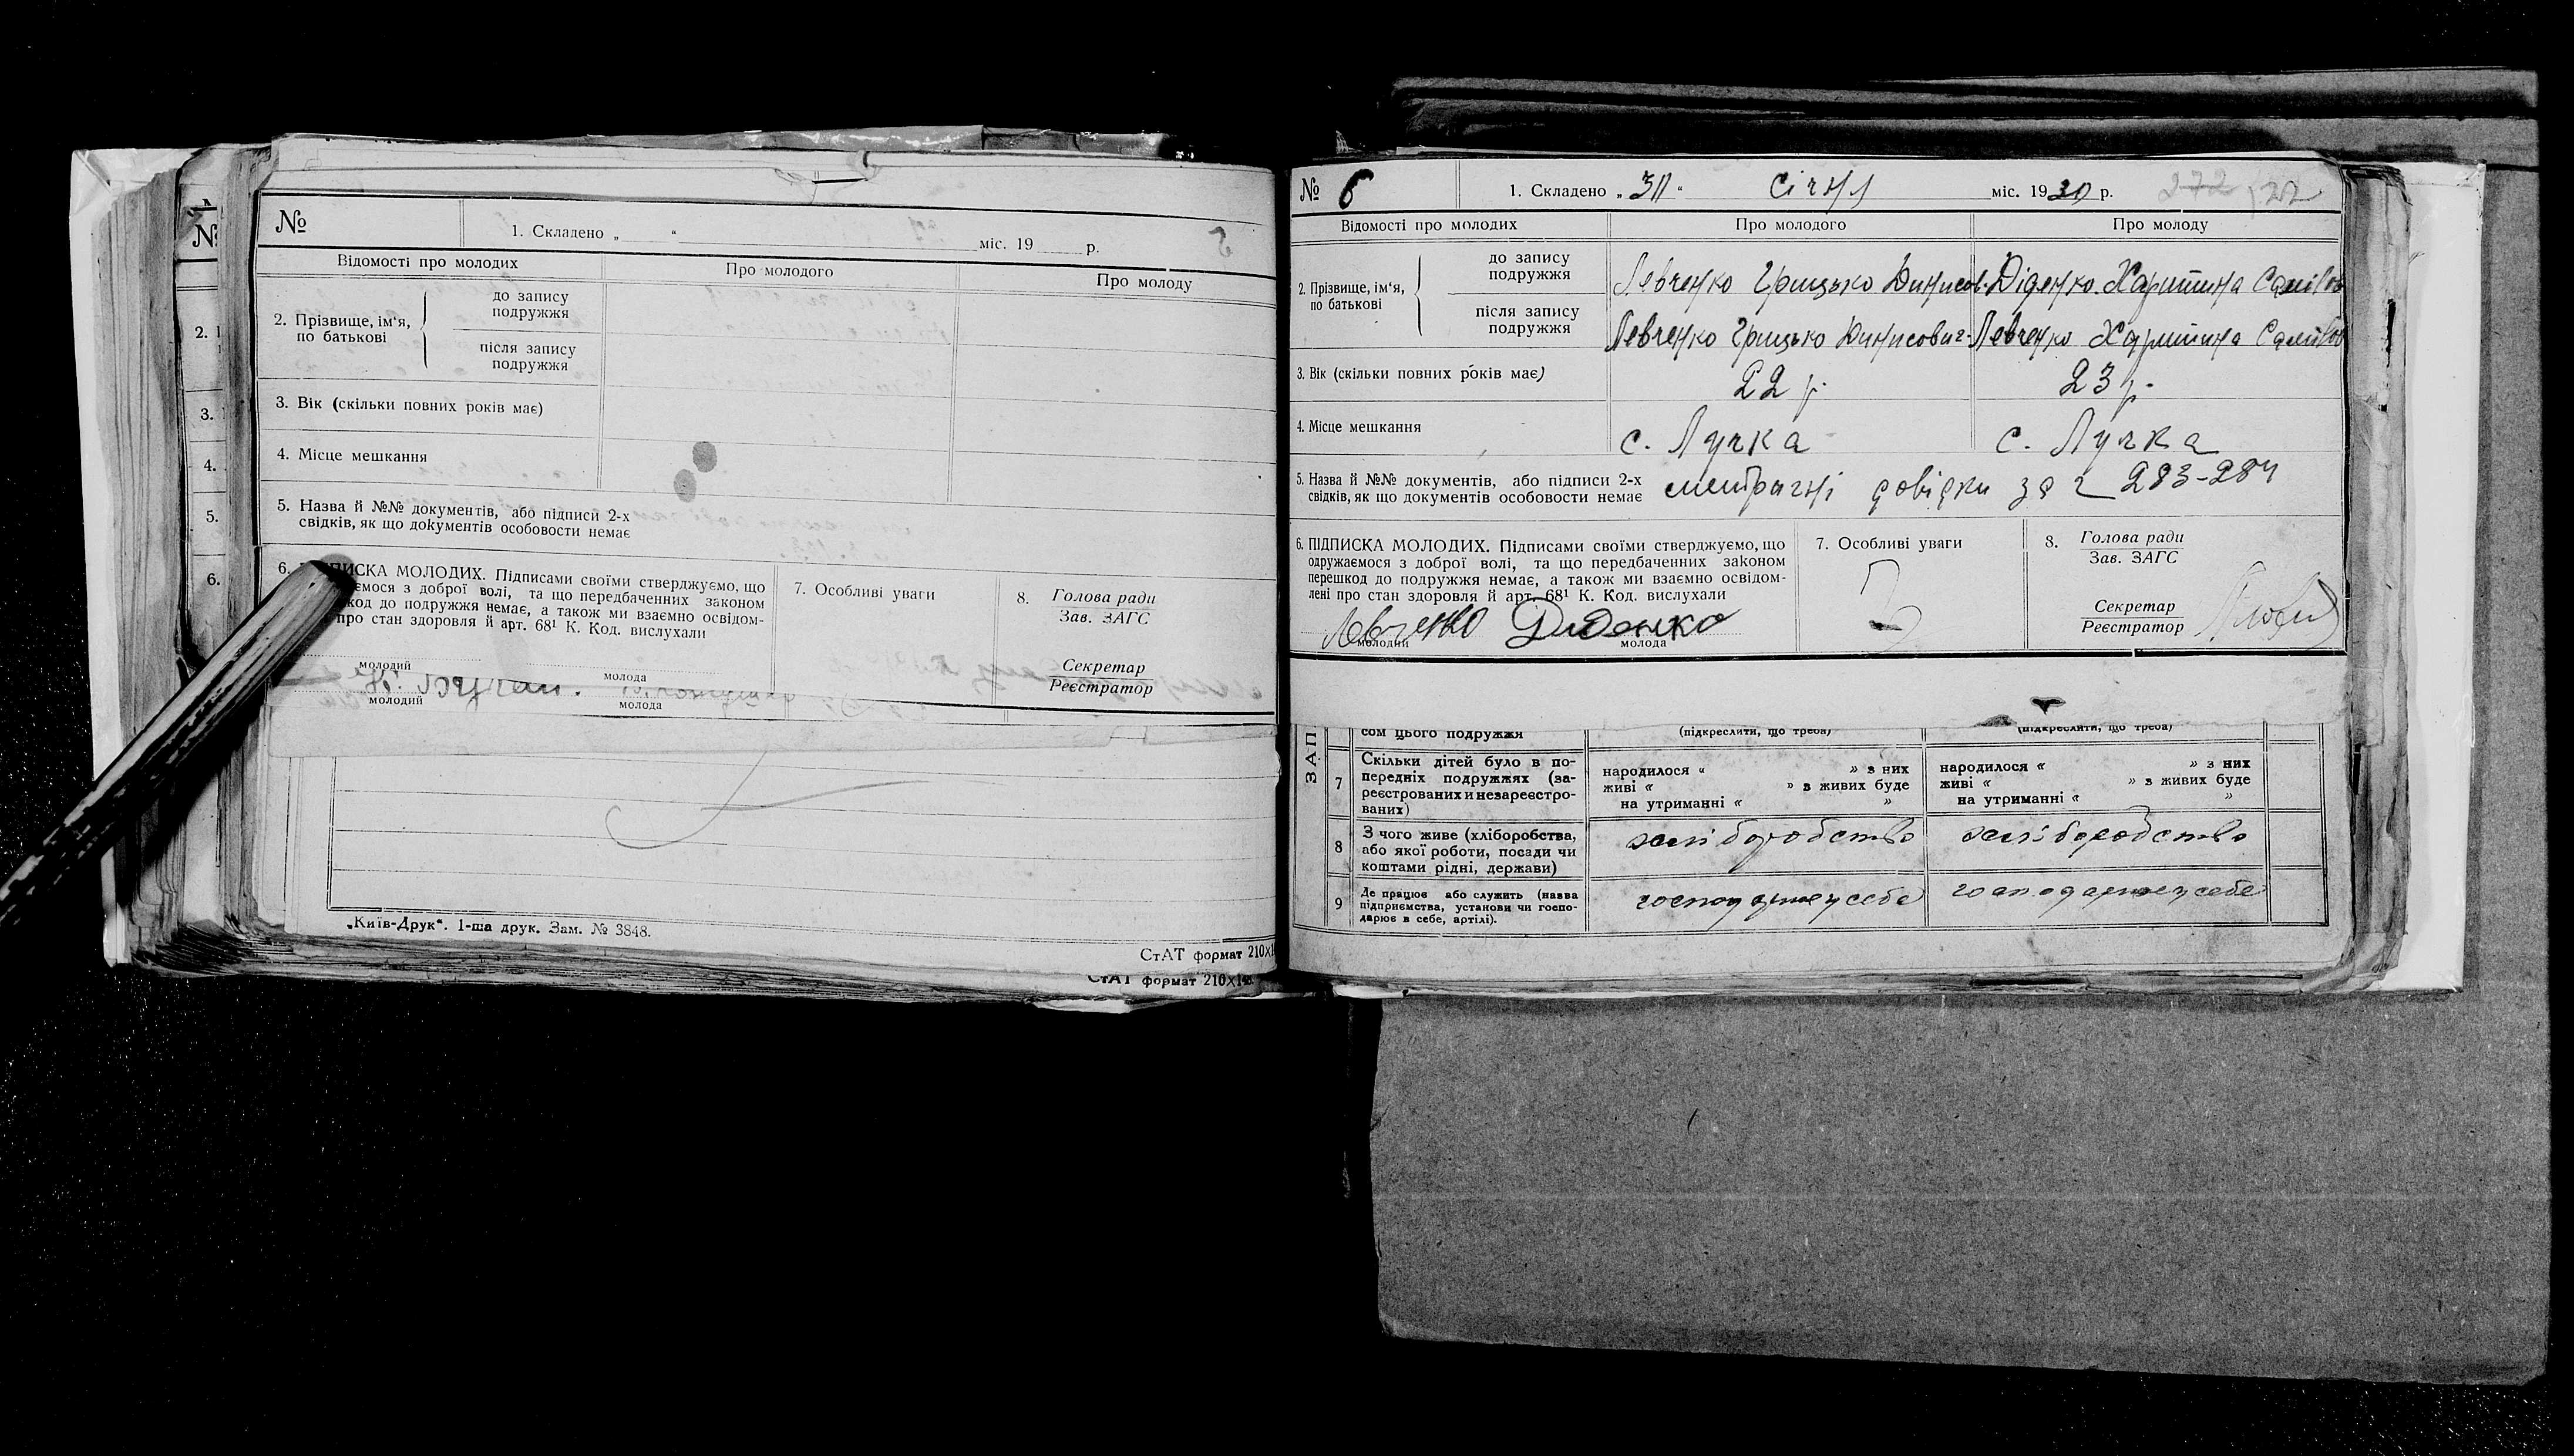 №
1. Складено „ “ міс. 19 р.
Відомості про молодих
Про молодого
Про молоду
2. Прізвище, ім‘я,
по батькові
до запису
подружжя
після запису
подружжя
3. Вік (скільки повних років має)
4. Місце мешкання
5. Назва й №№ документів, або підписи 2-х
свідків, як що документів особовости немає
6. ПИСКА МОЛОДИХ. Підписами своїми стверджуємо, що
ємося з доброї волі, та що передбаченних законом
код до подружжя немає, а також ми взаємно освідом-
про стан здоровля й арт. 68¹ К. Код. вислухали
молодий
молода
7. Особливі уваги
8. Голова ради
Зав. ЗАГС
Секретар
Реєстратор
молодий
молода
„Київ-Друк“. 1-ша друк. Зам. № 3848.
СтАТ формат 210х1
СтАТ формат 210х14
№
2.
3.
4.
5.
6.
№ 6
1. Складено „30“ Січня міс. 1930 р.
272 122
Відомості про молодих
Про молодого
Про молоду
2. Прізвище, ім‘я,
по батькові
до запису
подружжя
Левченко Грицько Динисов. Діденко Харитина Самійлов
після запису
подружжя
Левченко Грицько Динисович Левченко Харитина Самійлов
3. Вік (скільки повних років має)
22 р.
23 р.
4. Місце мешкання
с. Лучка
с. Лучка
5. Назва й №№ документів, або підписи 2-х
свідків, як що документів особовости немає
метричні довідки за 283-284
6. ПІДПИСКА МОЛОДИХ. Підписами своїми стверджуємо, що
одружаємося з доброї волі, та що передбаченних законом
перешкод до подружжя немає, а також ми взаємно освідом-
лені про стан здоровля й арт. 68¹ К. Код. вислухали
Левченко Диденко
молодий
молода
7. Особливі уваги
8. Голова ради
Зав. ЗАГС
Секретар
Реєстратор
ЗАП
сом цього подружжя
(підкреслити, що треба)
(підкреслити, що треба)
7
Скільки дітей було в по-
передніх подружжях (за-
реєстрованих и незареєстро-
ваних)
народилося “ » з них
живі “ » з живих буде
на утриманні “ »
народилося “ » з них
живі “ » з живих буде
на утриманні “ »
8
З чого живе (хліборобства,
або якої роботи, посади чи
коштами рідні, держави)
хліборобство
хліборобство
9
Де працює або служить (назва
підприємства, установи чи госпо-
дарює в себе, артілі).
господарює у себе
господарює у себе